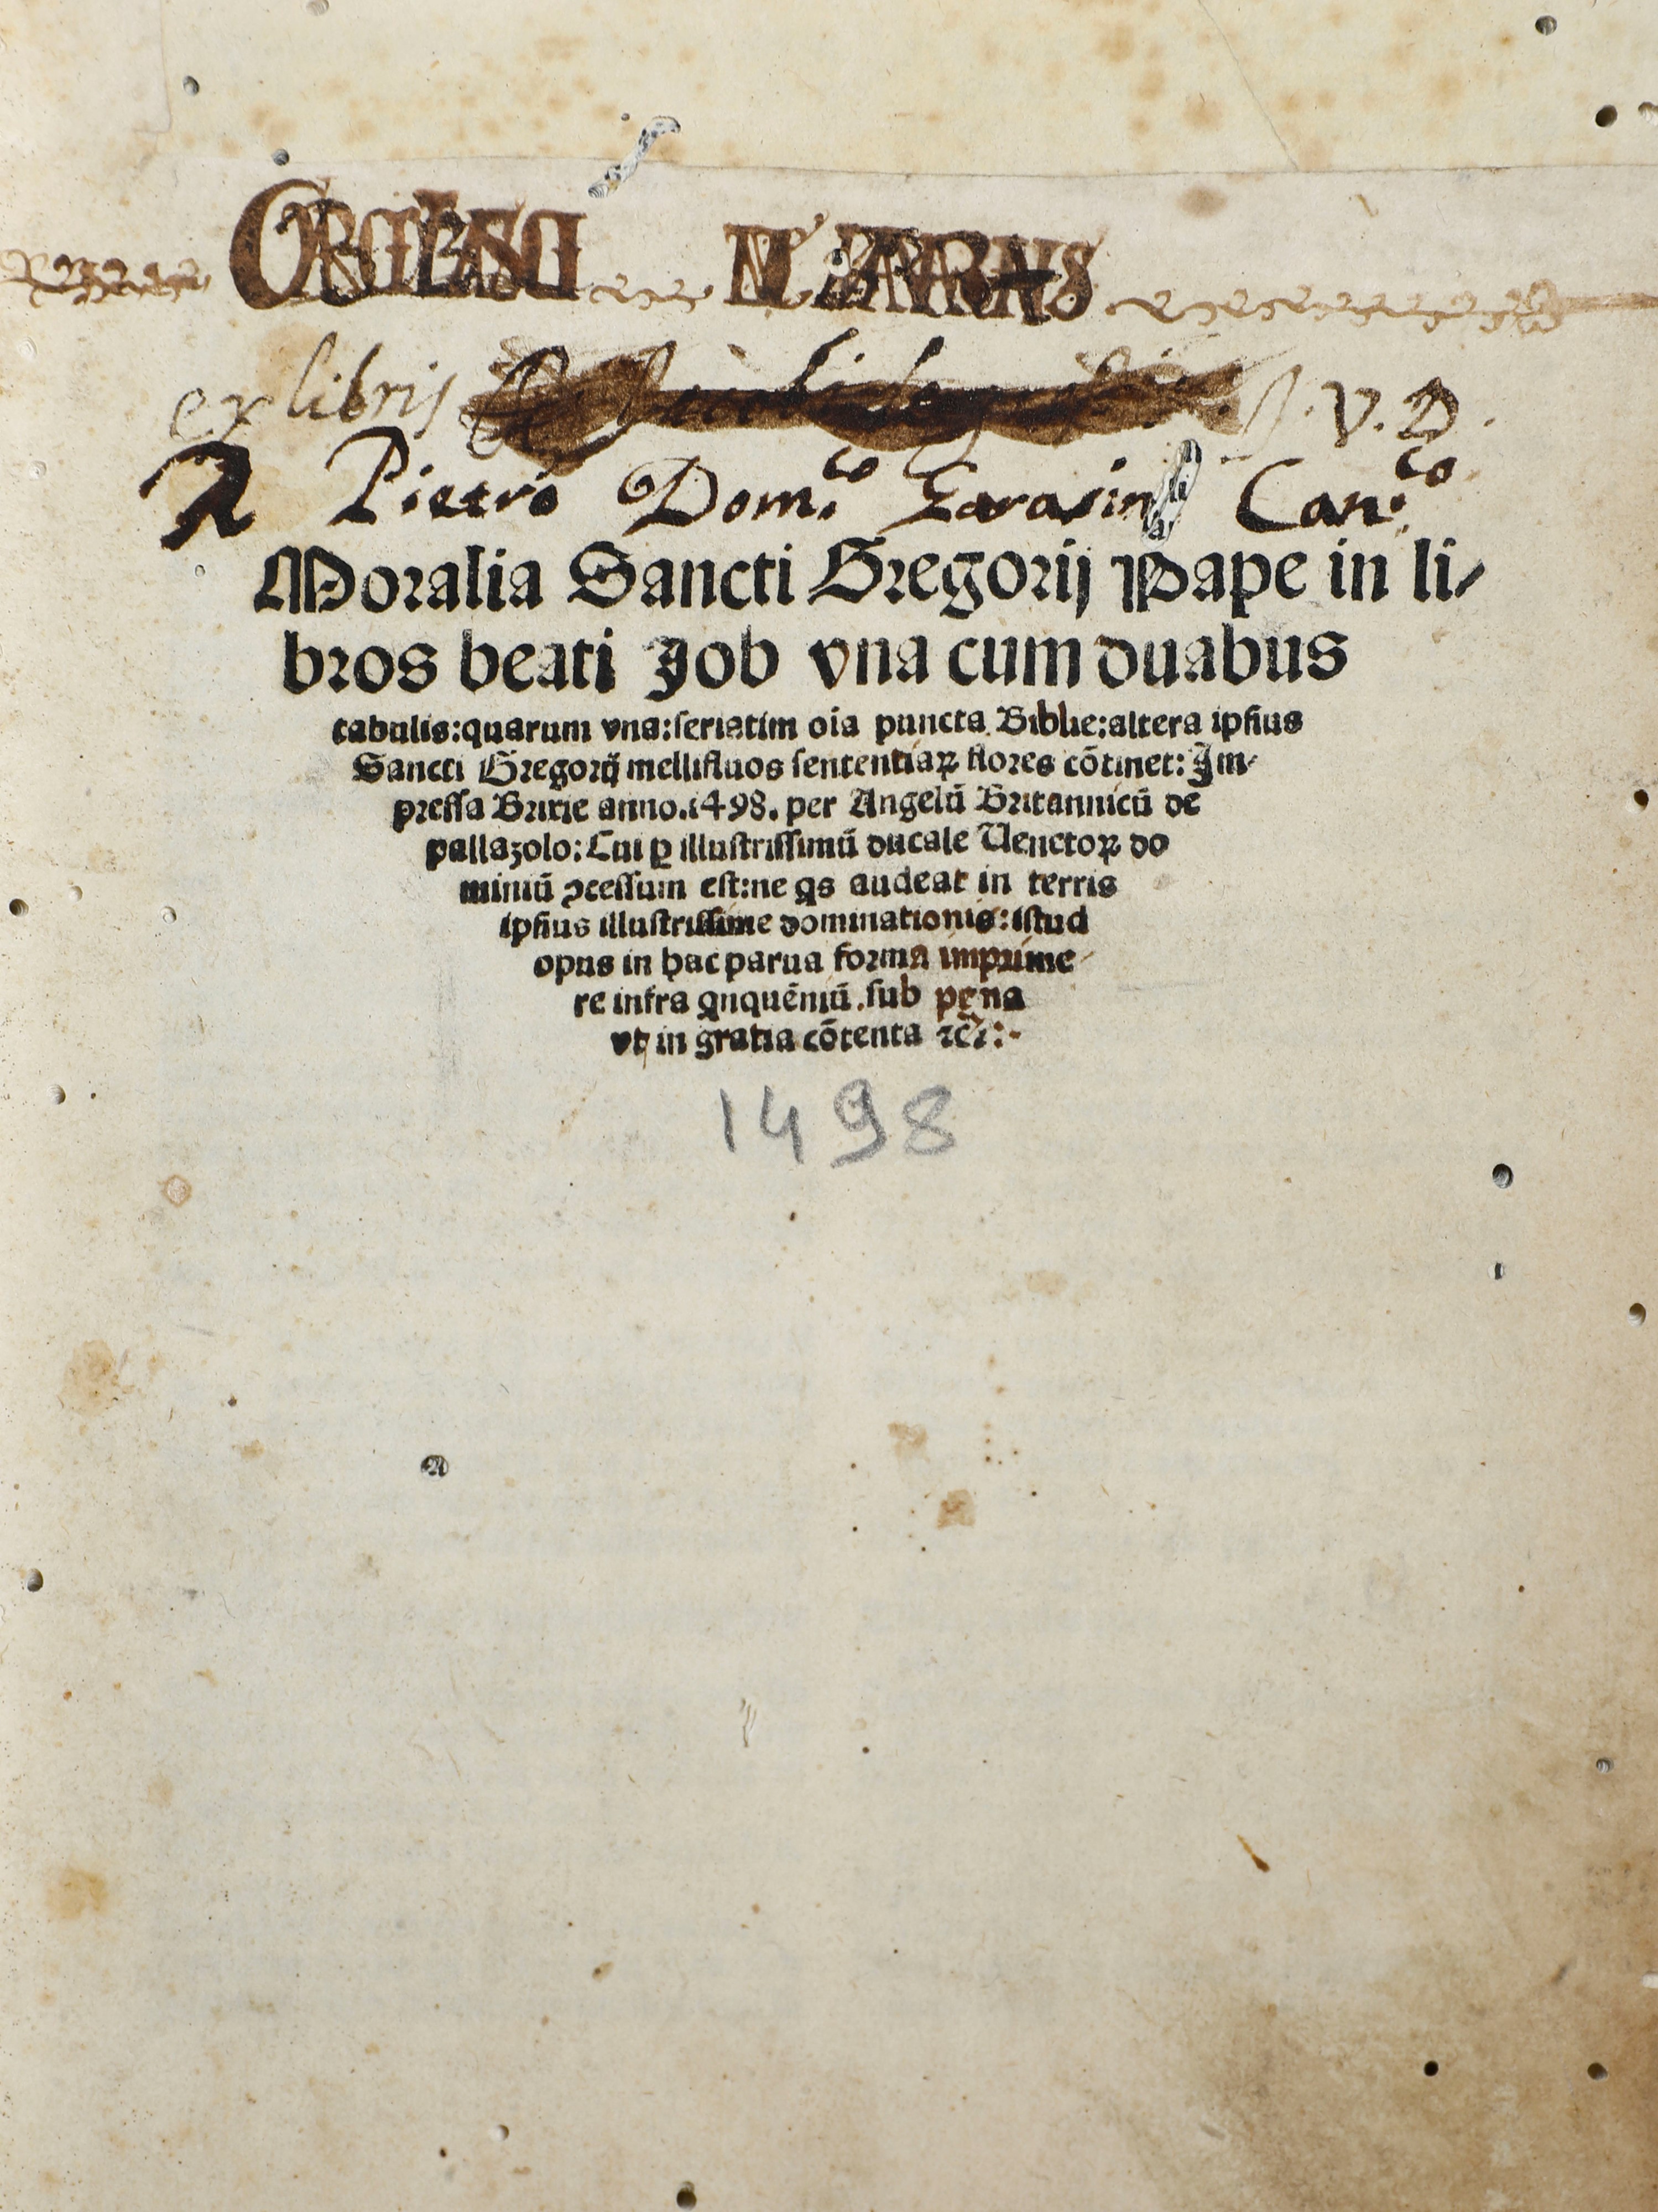 ex libris V. D.
Pietro Dom.co Can.co
Moralia Sancti Gregorij Pape in li-
bros beati Job vna cum duabus
tabulis: quarum vna: seriatim oĩa puncta Biblie: altera ipsius
Sancti Gregorij mellifluos sententiaꝝ flores cõtinet: Im-
pressa Brixie anno. 1498. per Angelũ Britannicũ de
pallazolo: Cui ꝑ illustrissimũ ducale Uenetoꝝ do
miniũ ꝯcessum est: ne qs audeat in terris
ipsius illustrissime dominationis: istud
opus in hac parua forma imprime-
re infra qnquẽniũ. sub pena
vt in gratia cõtenta ⁊c̃:-
1498